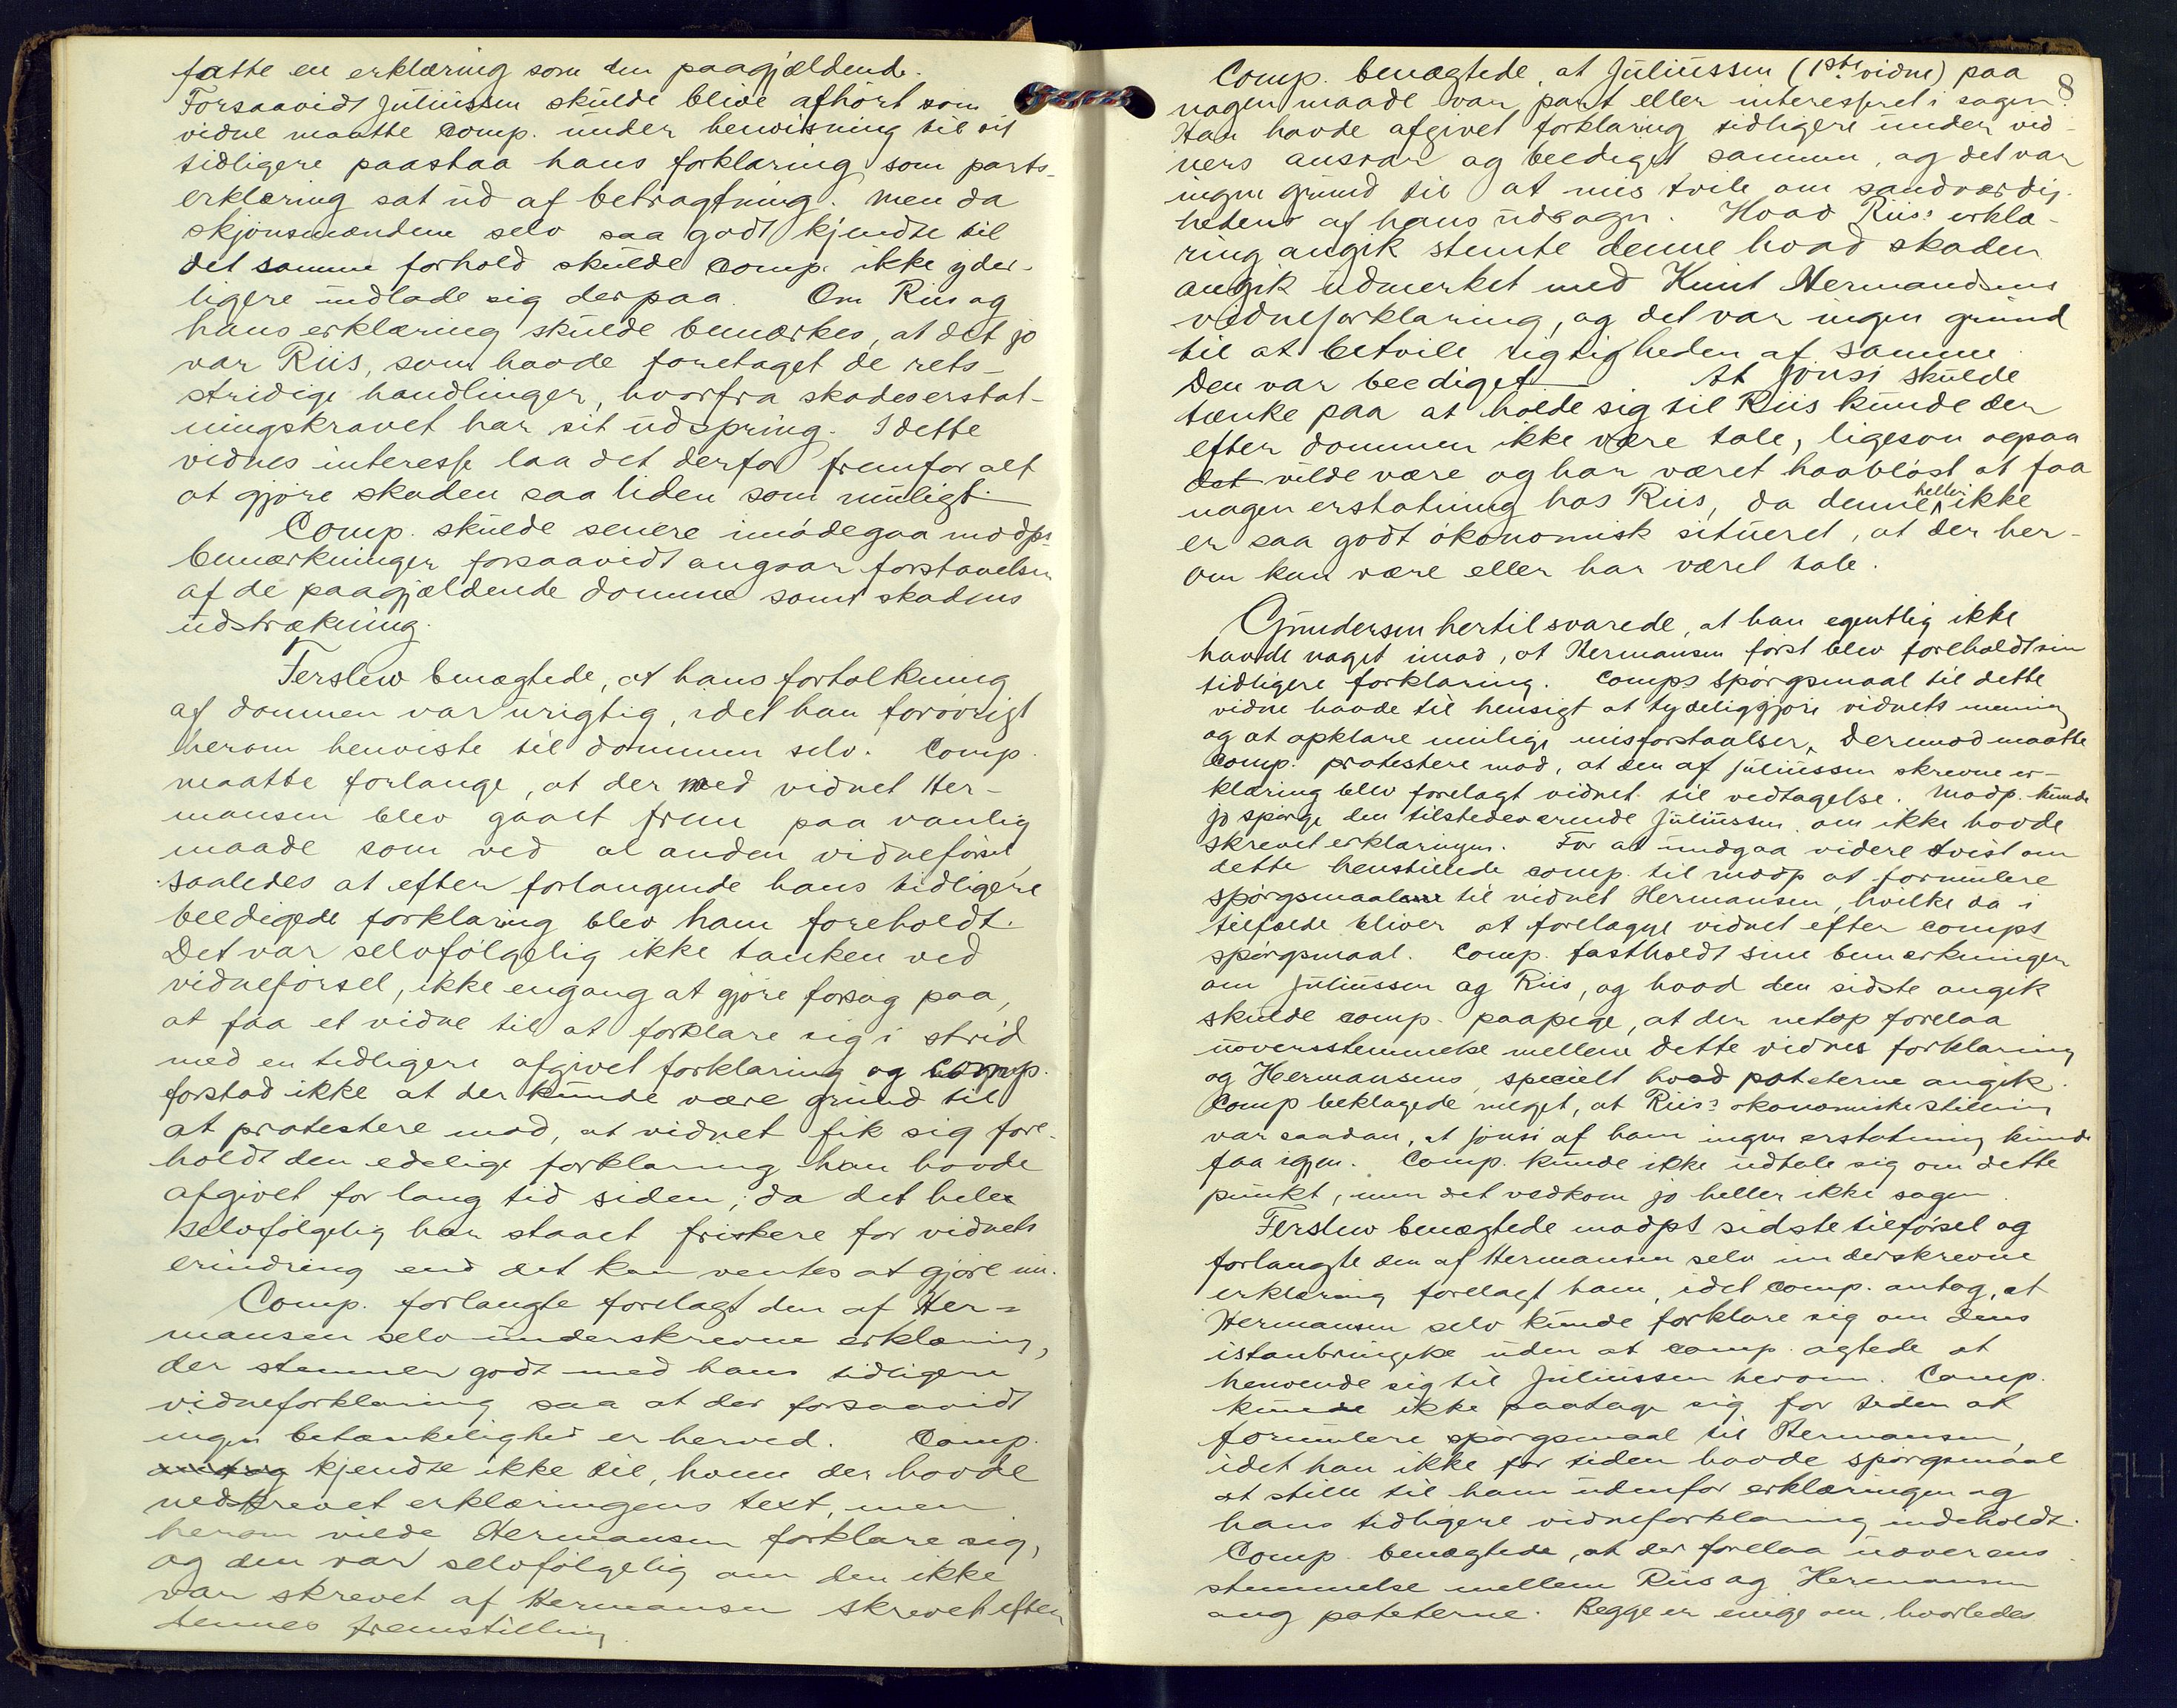 fatte en erklæring som den paagjældende.
Forsaavidt Juliussen skulde blive afhört som
vidne maatte comp. under henvisning til sit
tidligere paastaa hans forklaring som parts-
erklæring sat ud af betragtning. Men da
skjönsmændene selv saa godt kjendte til
det samme forhold skulde comp. ikke yder-
ligere indlade sig derpaa. Om Riis og
hans erklæring skulde bemærkes, at det jo
var Riis, som havde foretaget de rets-
stridige handlinger, hvorfra skadeserstat-
ningskravet har sit udspring. I dette
vidnes interesse laa det derfor fremfor alt
at gjöre skaden saa liden som muligt.
Comp. skulde senere imödegaa modps
bemærkninger forsaavidt angaar forstaaelsen
af de paagjældende domme samt skadens
udstrækning.
Ferslew benægtede, at hans fortolkning
af dommen var urigtig, idet han forövrigt
herom henviste til dommen selv. Comp.
maatte forlange, at der med vidnet Her-
mansen blev gaaet frem paa vanlig
maade som ved al anden vidneförsel,
saaledes at efter forlangende hans tidligere
beedigede forklaring blev ham foreholdt.
Det var selvfölgelig ikke tanken ved
vidneförsel, ikke engang at gjöre forsög paa,
at faa et vidne til at forklare sig i strid
med en tidligere afgivet forklaring og comp.
forstod ikke at der kunde være grund til
at protestere mod, at vidnet fik sig fore-
holdt den edelige forklaring han havde
afgivet for lang tid siden, da det hele
selvfölgelig har staaet friskere for vidnets
erindring end det kan ventes at gjöre nu.
Comp. forlangte forelagt den af Her-
mansen selv underskrevne erklæring,
der stemmer godt med hans tidligere
vidneforklaring saa at der forsaavidt
ingen betænkelighed er herved. Comp.
kjendte ikke til, hvem der havde
nedskrevet erklæringens text, men
herom vilde Hermansen forklare sig,
og den var selvfölgelig om den ikke
var skrevet af Hermansen skrevet efter
dennes fremstilling.
8
Comp. benægtede, at Juliussen (1ste vidne) paa
nogen maade var part eller interesseret i sagen.
Han havde afgivet forklaring tidligere under vid-
ners ansvar og beediget samme, og det var
ingen grund til at mis tvile om sandværdig-
hetens af hans udsagn. Hvad Riis's erklæ-
ring angik stemte denne hvad skaden
angik udmerket med Knut Hermandsens
vidneforklaring, og det var ingen grund
til at betvile rigtigheden af samme.
Den var beediget. At Jonsi skulde
tænke paa at holde sig til Riis kunde der
efter dommen ikke være tale, ligesom ogsaa
det vilde være og har været haablöst at faa
nogen erstatning hos Riis, da denne heller ikke
er saa godt ökonomisk situeret, at der her-
om kan være eller har været tale.
Gundersen hertil svarede, at han egentlig ikke
havde noget imod, at Hermansen först blev foreholdt sin
tidligere forklaring. Comps spörgsmaal til dette
vidne havde til hensigt at tydeliggjöre vidnets mening
og at opklare mulige misforstaalser. Derimod maatte
Comp. protestere mod, at den af Juliussen skrevne er-
klæring blev forelagt vidnet til vedtagelse. Modp. kunde
jo spörge den tilstedeværende Juliussen om ikke havde
skrevet erklæringen. For at undgaa videre tvist om
dette henstillede comp. til modp at formulere
spörgsmaal til vidnet Hermansen, hvilke da i
tilfælde bliver at forelægge vidnet efter comps
spörgsmaal. Comp. fastholdt sine bemerkninger
om Juliussen og Riis, og hvad den sidste angik
skulde comp. paapege, at der netop forelaa
uoversstemmelse mellem dette vidnes forklaring
og Hermansens, specielt hvad poteterne angik.
Comp beklagede meget, at Riis's økonomiske stilling
var saadan, at Jonsi af ham ingen erstatning kunde
faa igjen. Comp. kunde ikke udtale sig om dette
punkt, men det vedkom jo heller ikke sagen.
Ferslew benægtede modps sidste tilförsel og
forlangte den af Hermansen selv underskrevne
erklæring forelagt ham, idet comp. antog, at
Hermansen selv kunde forklare sig om dens
istanbringelse uden at comp. agtede at
henvende sig til Juliussen herom. Comp.
kunde ikke paatage sig for tiden at
formulere spörgsmaal til Hermansen,
idet han ikke for tiden havde spörgsmaal
at stille til ham udenfor erklæringen og
hans tidligere vidneforklaring indeholdt.
Comp. benægtede, at der forelaa uoverens
stemmelse mellem Riis og Hermansen
ang poteterne. Begge er enige om, hvorledes